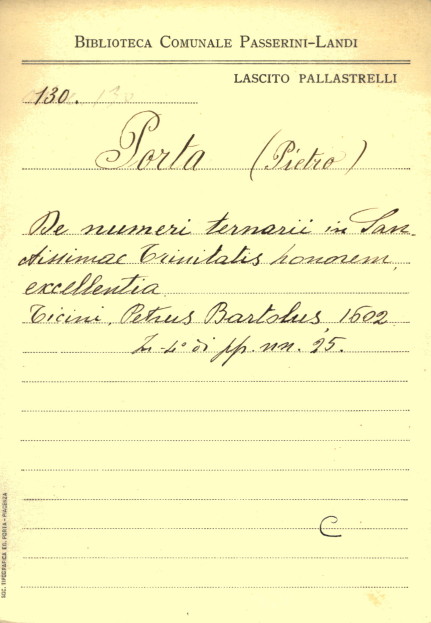 BIBLIOTECA COMUNALE PASSERINI-LANDI
LASCITO PALLASTRELLI
130. 130
Porta (Pietro)
De numeri ternarii in San-
ctissimae Trinitatis honorem,
excellentia.
Ticini, Petrus Bartolus, 1602
In-4° di pp. nn. 25.
C
SOC. TIPOGRAFICA ED. PORTA - PIACENZA